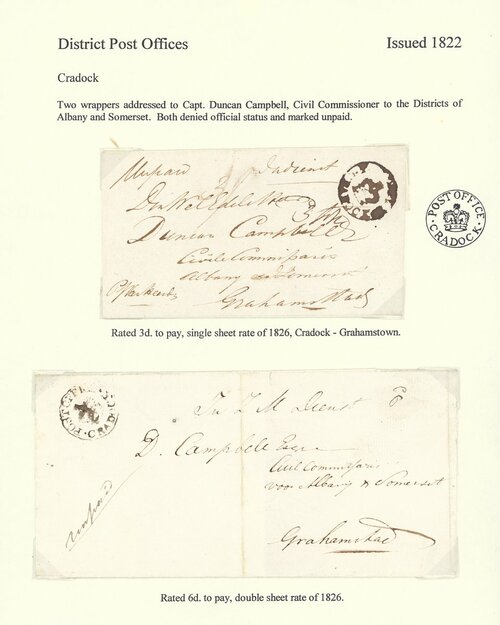 District Post Offices
Issued 1822
Cradock
Two wrappers addressed to Capt. Duncan Campbell, Civil Commissioner to the Districts of
Albany and Somerset. Both denied official status and marked unpaid.
Unpaid
In dienst
Duncan Campbell
Civile Commissaris
Albany Somerset
Grahamstad
POST OFFICE
CRADOCK
Rated 3d. to pay, single sheet rate of 1826, Cradock - Grahamstown.
POST OFFICE
CRADOCK
In Z M Dienst
6
D. Campbell Esqr
Civil Commissaris
voor Albany & Somerset
unpaid
Grahamstad
Rated 6d. to pay, double sheet rate of 1826.